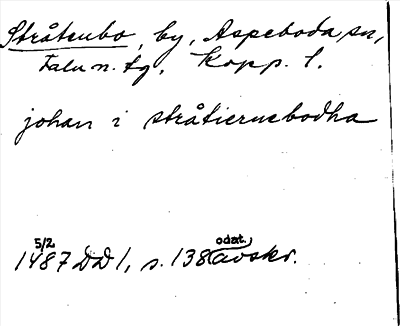 Stråtenbo, by, Aspeboda sn,
Falu n. tg. Kopp. l.
johan i stråtiernebodha
5/2 odat.
1487 DD 1, s. 138 (avskr.